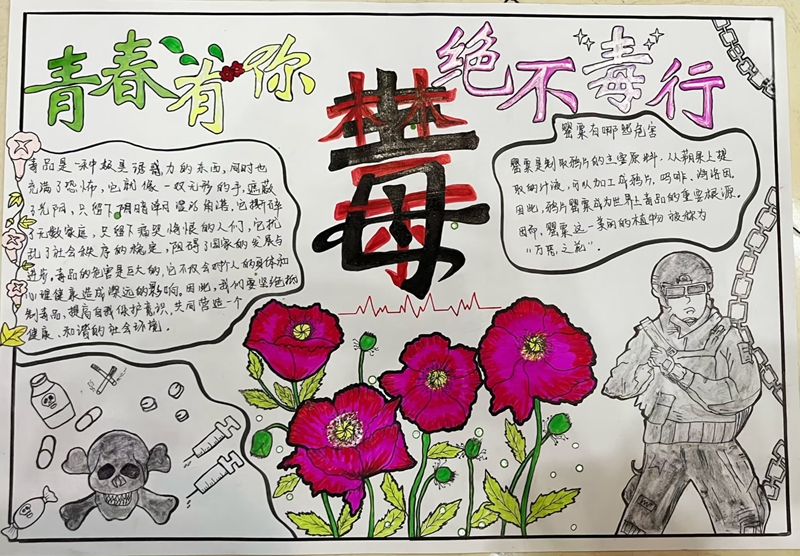 青春有你
绝不毒行
禁毒
毒品是一种极具诱惑力的东西,同时也
充满了恐怖,它就像一双无形的手,遮蔽
了光阴,只留下阴暗潮湿的角落,它撕碎
了无数家庭,只留下痛哭悔恨的人们,它扰
乱了社会秩序的稳定,阻碍了国家的发展与
进步,毒品的危害是巨大的,它不仅会对个人的身体和
心理健康造成深远的影响。因此,我们要坚绝抵
制毒品,提高自我保护意识,共同营造一个
健康、和谐的社会环境。
罂粟有哪些危害
罂粟是制取鸦片的主要原料,从蒴果上提
取的汁液,可以加工成鸦片,吗啡,海洛因
因此,鸦片罂粟成为世界上毒品的重要根源。
因而,罂粟这一美丽的植物被称为
“万恶之花”。